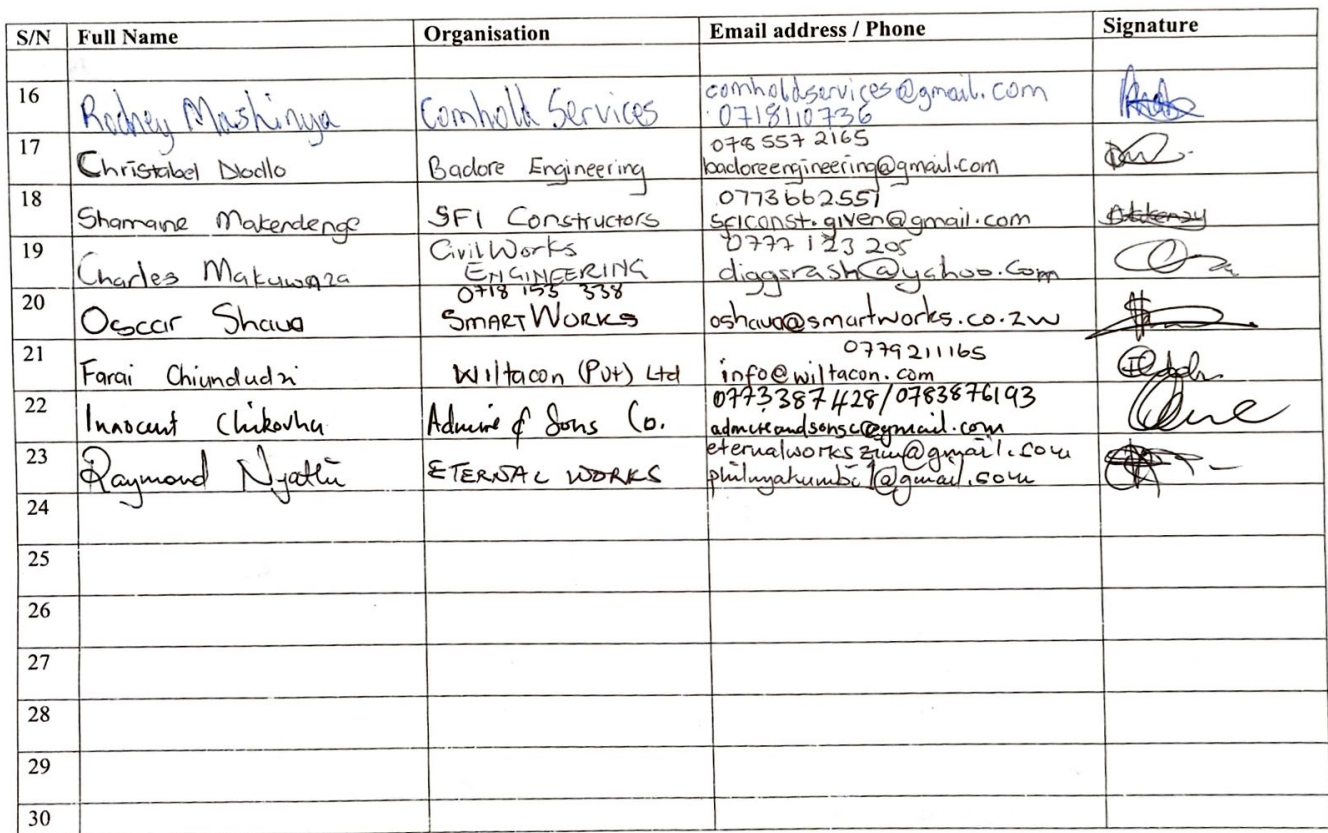 S/N Full Name Organisation Email address / Phone Signature
16 Rodney Mashinya Comhold Services comholdservices@gmail.com
0718110736
17 Christabel Dlodlo Badore Engineering 078 557 2165
badoreengineering@gmail.com
18 Shamaine Makendenge SFI Constructors 0773662551
sficonst.given@gmail.com
19 Charles Makuwaza Civil Works
ENGINEERING 0777 123 205
diggsrash@yahoo.com
20 Oscar Shava 0718 153 338
SMART WORKS oshava@smartworks.co.zw
21 Farai Chiundudzi Wiltacon (Pvt) Ltd 0779211165
info@wiltacon.com
22 Innocent Chikovha Admire & Sons Co. 0773387428/0783876193
admireandsonsc@gmail.com
23 Raymond Nyathi ETERNAL WORKS eternalworkszim@gmail.com
philnyakumbi1@gmail.com
24
25
26
27
28
29
30